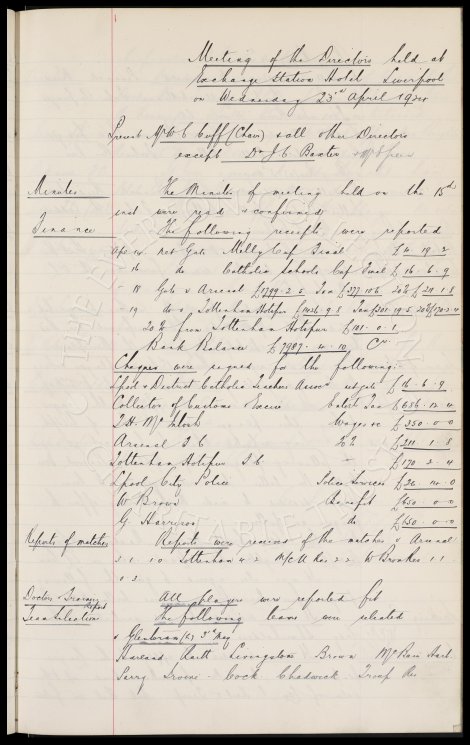 Meeting of the Directors held at
Exchange Station Hotel Liverpool
on Wednesday 23rd April 1924
Present Mr W C Cuff (Chair) & all other Directors
except Dr J C Baxter
Minutes The Minutes of meeting held on the 15th
inst were read & confirmed
Finance The following receipts were reported
net Gate Molly Cup Final £4. 19. 2
" 16 do Catholic Schools Cup Final £16. 6. 9
" 18 Gate v Arsenal
" 19 do v Tottenham Hotspur
20% from Tottenham Hotspur £101. 0. 1
Bank Balance £7907. 4. 10 Cr
Cheques were signed for the following:-
Lpool & District Catholic Teachers Assoc £16. 6. 9
Collector of Customs & Excise Entert Tax £656. 12. 4
Wages &c £350. 0. 0
Arsenal F C £211. 1. 8
Tottenham Hotspur F C £170. 2. 4
Lpool City Police Police Services
W Brown Benefit £650. 0. 0
G Harrison do £650. 0. 0
Reports of matches Reports were received of the matches v Arsenal
3.1 1.0 Tottenham 4.2 McU Res 2.2 1.1
0.2
Doctors & Trainers report All players were reported fit
Team Selection The following teams were selected
v Glentoran (a) 3rd May
Harland Raitt Livingstone Brown McBain Hart
Parry Irvine Cock Chadwick Troup Res